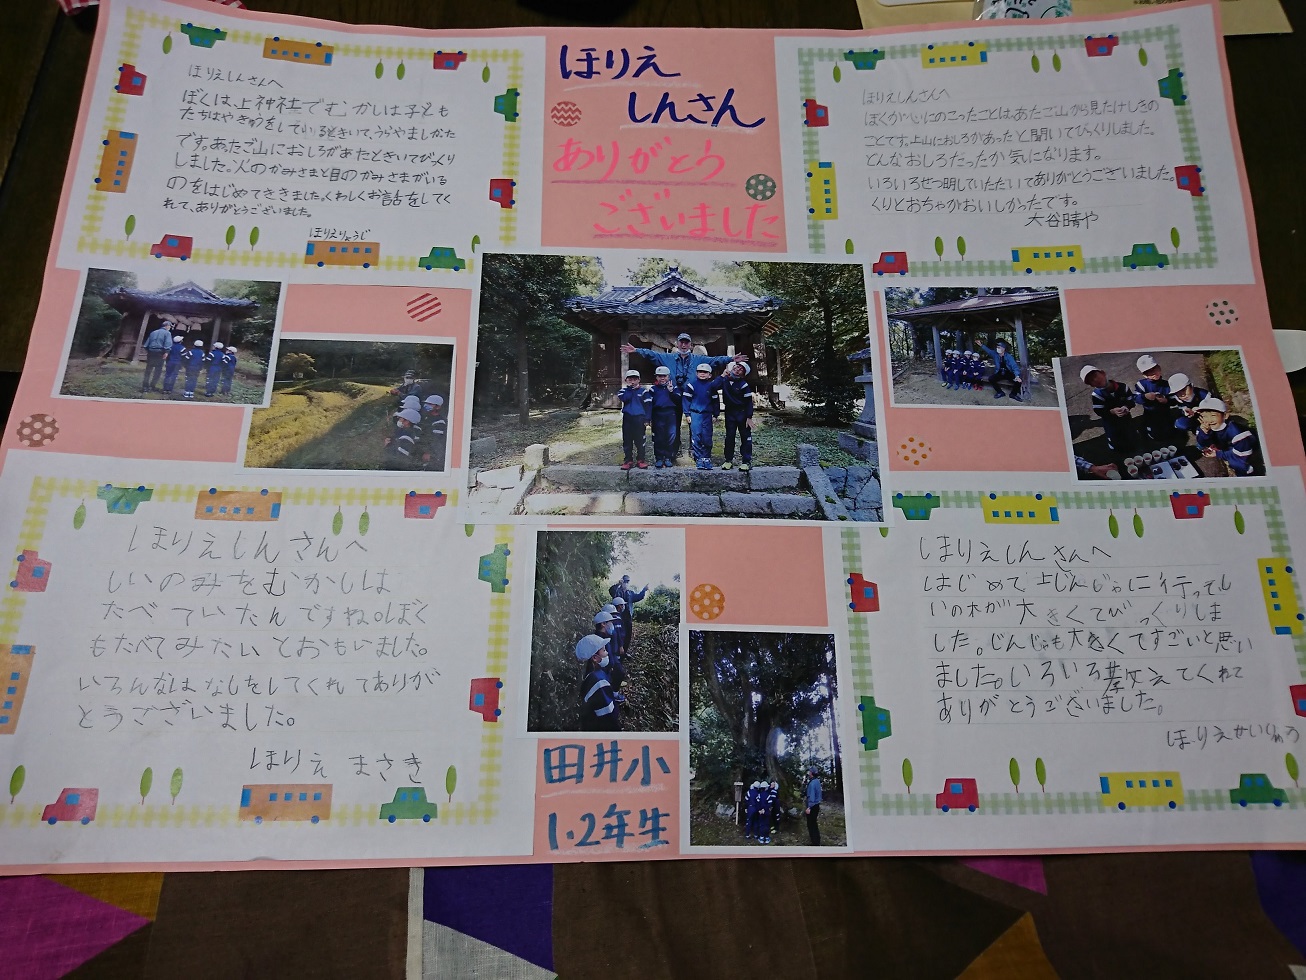 ほりえ
しんさん
ありがとう
ございました
ほりえしんさんへ
ぼくは、上神社でむかしは子ども
たちはやきゅうをしているときいて、うらやましかた
です。あたご山におしろがあたときいてびっくり
しました。人のかみさまと目のかみさまがいる
のをはじめてききました。くわしくお話をしてく
れて、ありがとうございました。
ほりえりゅうじ
ほりえしんさんへ
ぼくが心にのこったことは、あたご山から見たけしきの
ことです。上山におしろがあったと聞いてびっくりしました。
どんなおしろだったか気になります。
いろいろせつ明していただいてありがとうございました。
くりとおちゃがおいしかったです。
大谷晴や
ほりえしんさんへ
しいのみをむかしは
たべていたんですね。ぼく
もたべてみたいとおもいました。
いろんなはなしをしてくれてありが
とうございました。
ほりえ まさき
ほりえしんさんへ
はじめて上じんじゃに行ってし
いの木が大きくてびっくりしま
した。じんじゃも大きくてすごいと思い
ました。いろいろ教えてくれて
ありがとうございました。
ほりえせいりゅう
田井小
1・2年生